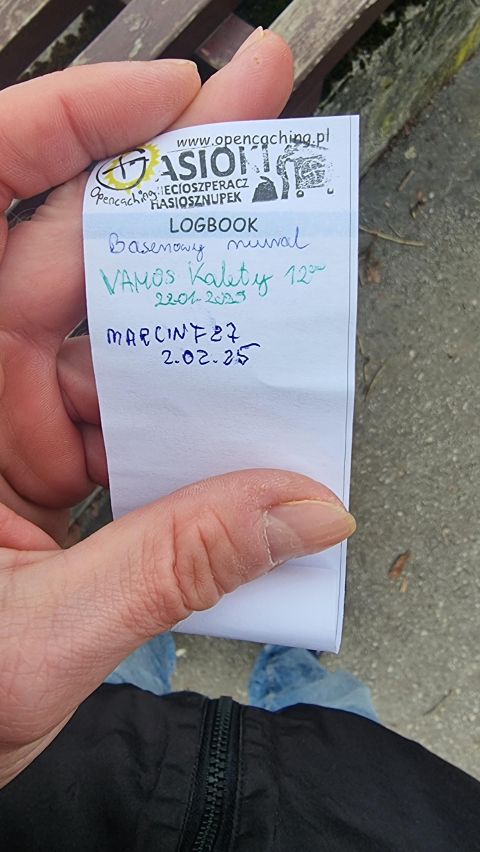 www.opencaching.pl
Opencaching
HASIOKI
MIECIOSZPERACZ
HASIOSZNUPEK
LOGBOOK
Basenowy mural
VAMOS Kalety 12⁰⁰
22.01.2025
MARCINF27
2.02.25